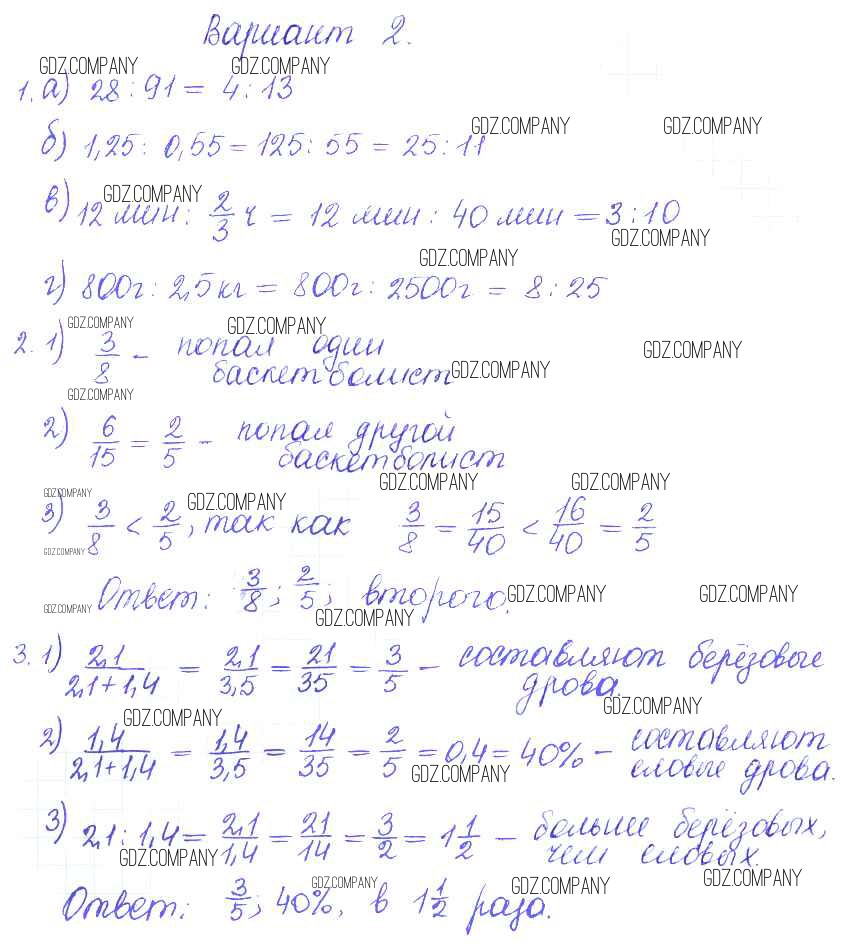 Вариант 2.
GDZ.COMPANY GDZ.COMPANY
1. а) 28 : 91 = 4 : 13
GDZ.COMPANY GDZ.COMPANY
б) 1,25 : 0,55 = 125 : 55 = 25 : 11
GDZ.COMPANY
в) 12 мин : 2/3 ч = 12 мин : 40 мин = 3 : 10
GDZ.COMPANY
GDZ.COMPANY
г) 800г : 2,5 кг = 800г : 2500г = 8 : 25
GDZ.COMPANY GDZ.COMPANY
2. 1) 3/8 - попал один
GDZ.COMPANY
баскетболист GDZ.COMPANY
GDZ.COMPANY
2) 6/15 = 2/5 - попал другой
баскетболист
GDZ.COMPANY GDZ.COMPANY
GDZ.COMPANY GDZ.COMPANY
3) 3/8 < 2/5, так как 3/8 = 15/40 < 16/40 = 2/5
GDZ.COMPANY
Ответ: 3/8; 2/5; второго. GDZ.COMPANY GDZ.COMPANY
GDZ.COMPANY GDZ.COMPANY
3. 1) 2,1/2,1+1,4 = 2,1/3,5 = 21/35 = 3/5 - составляют берёзовые
дрова.
GDZ.COMPANY
GDZ.COMPANY
2) 1,4/2,1+1,4 = 1,4/3,5 = 14/35 = 2/5 = 0,4 = 40% - составляют
еловые дрова.
GDZ.COMPANY
3) 2,1 : 1,4 = 2,1/1,4 = 21/14 = 3/2 = 1 1/2 - больше берёзовых,
чем еловых.
GDZ.COMPANY
GDZ.COMPANY GDZ.COMPANY GDZ.COMPANY
Ответ: 3/5; 40%, в 1 1/2 раза.